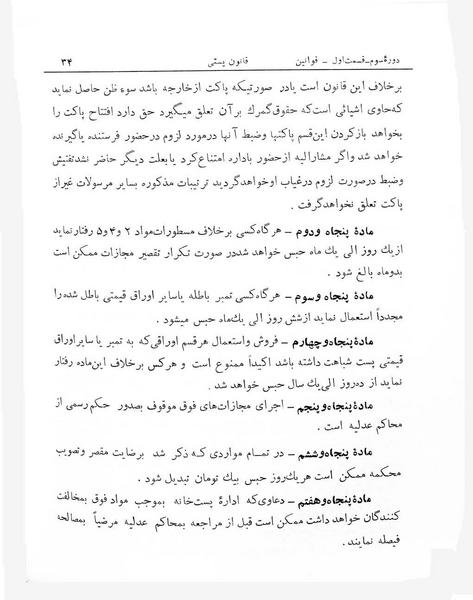 دورهٔ سوم - قسمت اول - قوانین قانون پستی ۳۴
برخلاف این قانون است یا در صورتیکه پاکت از خارجه باشد سوء ظن حاصل نماید
که حاوی اشیائی است که حقوق گمرك بر آن تعلق میگیرد حق دارد افتتاح پاکت را
بخواهد باز کردن این قسم پاکتها و ضبط آنها در مورد لزوم در حضور فرستنده یا گیرنده
خواهد شد و اگر مشارالیه از حضور باداره امتناع کرد یا بعلت دیگر حاضر نشد تفتیش
وضبط در صورت لزوم در غیاب او خواهد گردید ترتیبات مذکوره بسایر مرسولات غیر از
پاکت تعلق نخواهد گرفت .
مادهٔ پنجاه ودوم – هر گاه کسی برخلاف مسطورات مواد ۲ و ۴ و ۵ رفتار نماید
از یك روز الی یك ماه حبس خواهد شد در صورت تکرار تقصیر مجازات ممکن است
بدو ماه بالغ شود .
مادهٔ پنجاه وسوم – هر گاه کسی تمبر باطله یا سایر اوراق قیمتی باطل شده را
مجدداً استعمال نماید از شش روز الی یك ماه حبس میشود .
مادهٔ پنجاه وچهارم – فروش و استعمال هر قسم اوراقی که به تمبر یا سایر اوراق
قیمتی پست شباهت داشته باشد اکیداً ممنوع است و هر کس برخلاف این ماده رفتار
نماید از ده روز الی یك سال حبس خواهد شد .
مادهٔ پنجاه وپنجم – اجرای مجازات‌های فوق موقوف بصدور حکم رسمی از
محاکم عدلیه است .
مادهٔ پنجاه وششم – در تمام مواردی که ذکر شد برضایت مقصر وتصویب
محکمه ممکن است هر یك روز حبس بیك تومان تبدیل شود .
مادهٔ پنجاه وهفتم – دعاوی که ادارهٔ پست‌خانه بموجب مواد فوق بمخالفت
کنندگان خواهد داشت ممکن است قبل از مراجعه بمحاکم عدلیه مرضیاً بمصالحه
فیصله نمایند .